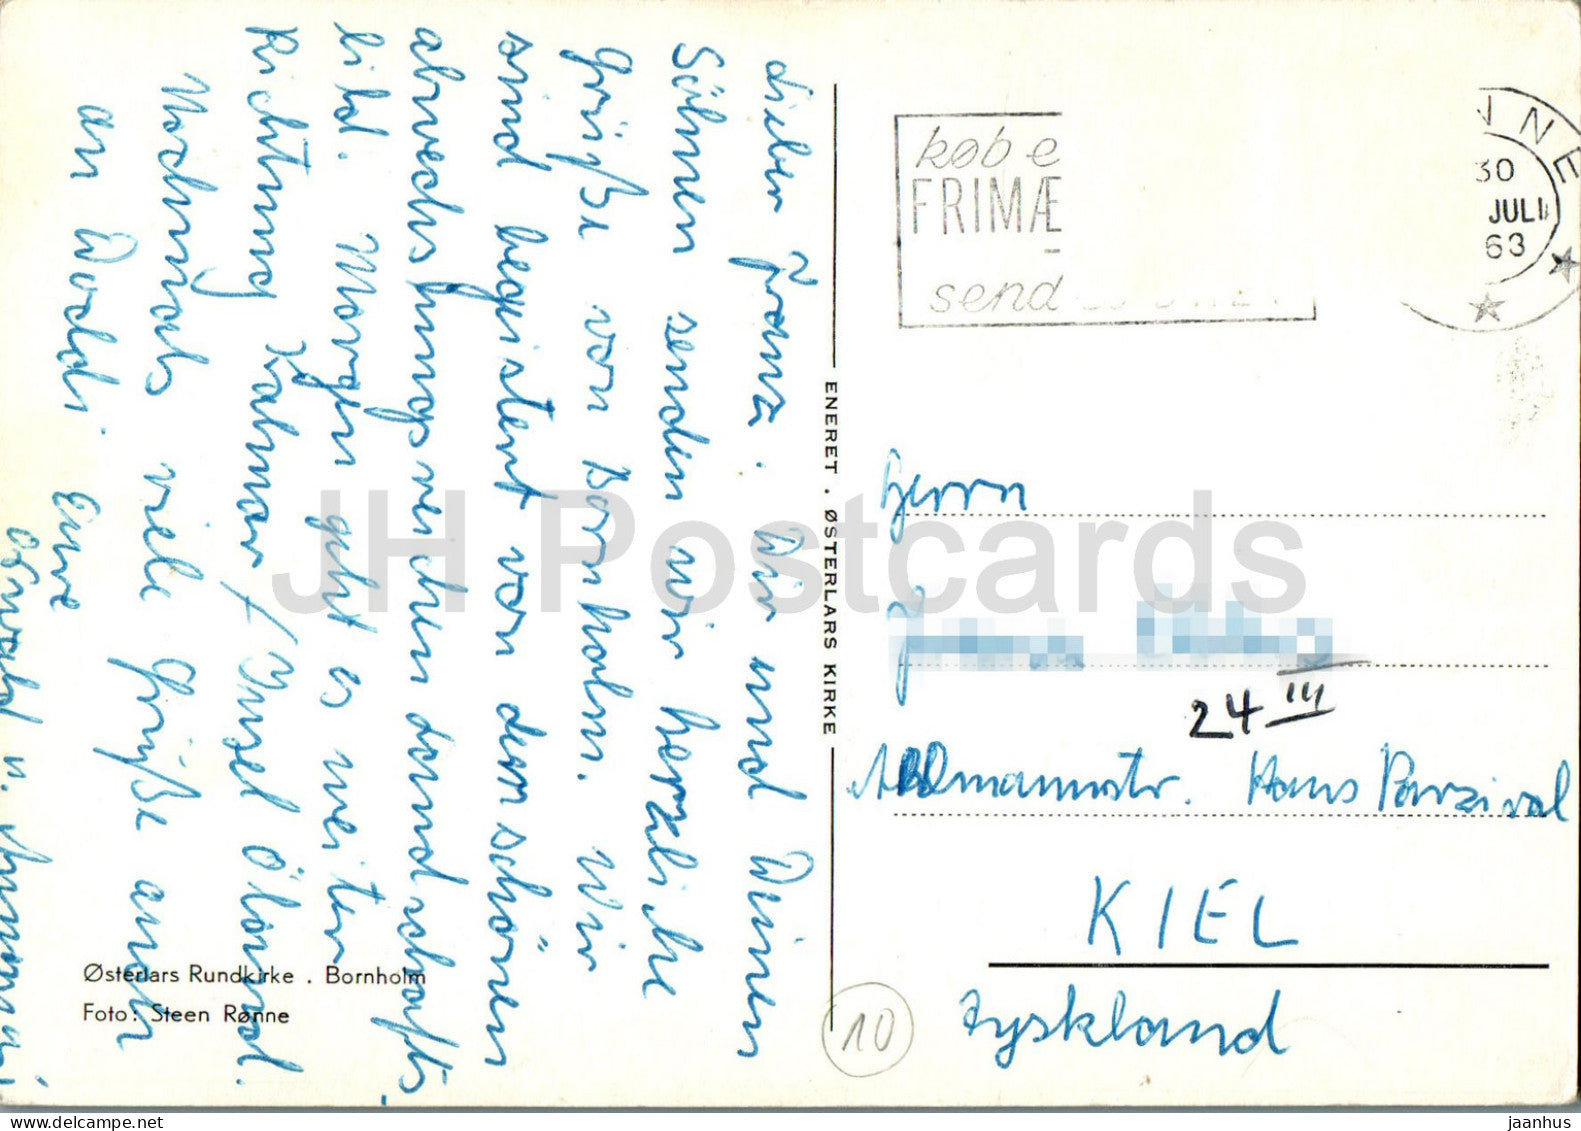 Lieber Franz. Wir und Deinen
Söhnen senden wir herzliche
Grüße von Bornholm. Wir
sind begeistert von dem schönen
abwechslungsreichen Landschafts-
bild. Morgen geht es weiter
Richtung Kalmar / Insel Öland.
Nochmals viele Grüße auch
an Waldi. Eure
Oswald u. Annemi
Østerlars Rundkirke . Bornholm
Foto: Steen Rønne
ENERET . ØSTERLARS KIRKE
køb e
FRIMÆ
send
NNE
30
JULI
63
Herrn
24 III
Hans Parzival
KIEL
Tyskland
10
JH Postcards
jaanhus